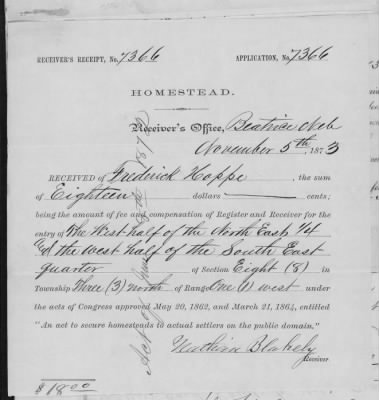 RECEIVER'S RECEIPT, No. 7366 APPLICATION, No. 7366
HOMESTEAD.
Receiver's Office, Beatrice Neb
November 5th, 1873
RECEIVED of Frederick Hoppe the sum
of Eighteen dollars cents;
being the amount of fee and compensation of Register and Receiver for the
entry of The West half of the North East 1/4
& the West half of the South East
quarter of Section Eight (8) in
Township Three (3) north of Range One (1) west under
the acts of Congress approved May 20, 1862, and March 21, 1864, entitled
"An act to secure homesteads to actual settlers on the public domain."
Nathan Blakely
Receiver
$18.00
Act of June 8th 1872